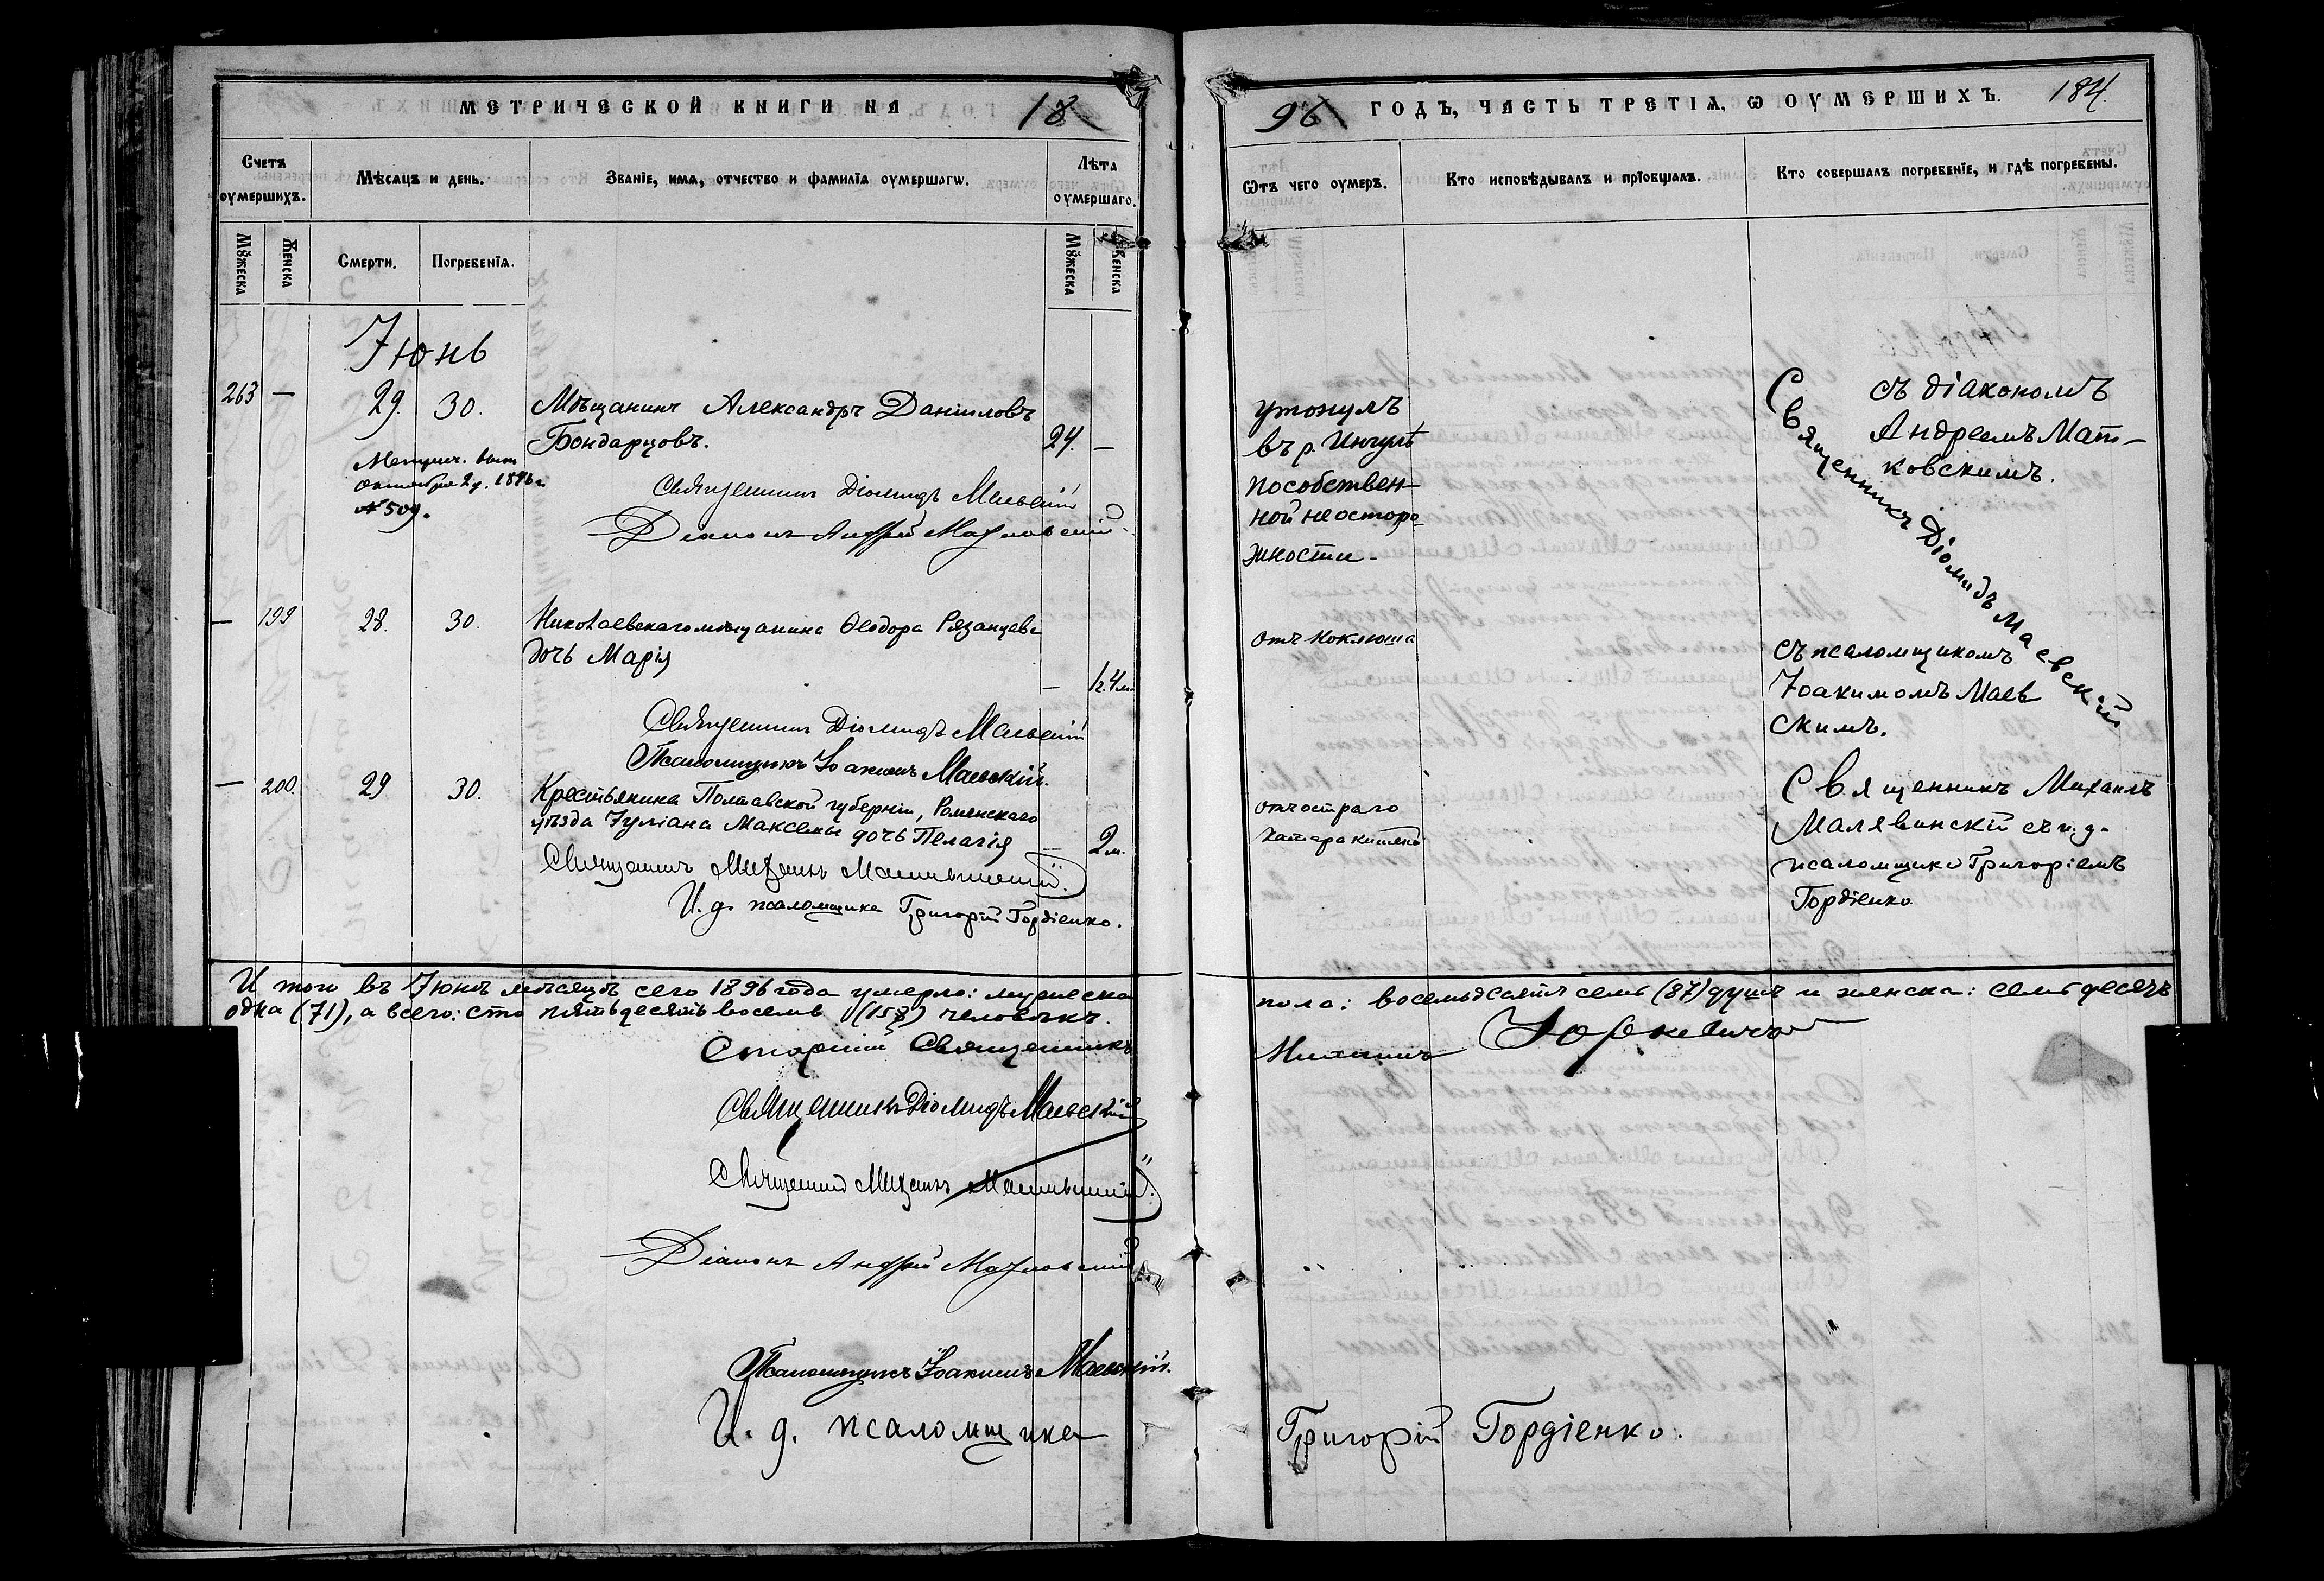 МЕТРИЧЕСКОЙ КНИГИ НА 18
96 ГОДЪ, ЧАСТЬ ТРЕТІѦ, Ѡ ОУМЕРШИХЪ. 184.
Счетъ оумершихъ.
Мѣсяцъ и день.
Званіе, имѧ, отчество и фамиліѧ оумершагѡ.
Лѣта оумершаго.
Ѿтъ чего оумеръ.
Кто исповѣдывалъ и пріобщалъ.
Кто совершалъ погребеніе, и гдѣ погребены.
Мꙋжеска
Женска
Смерти.
Погребеніѧ.
Мꙋжеска
Женска
Іюнь
263 — 29. 30. Мѣщанинъ Александръ Данііловъ
Бондарцовъ. 24. —
октября 2 д. 1896 г.
№ 509.
Священникъ Діомидъ Маевскій
Діаконъ Андрей Матковскій
утонулъ
въ р. Ингулѣ
по собствен-
ной неосторо-
жности.
Священникъ Діомидъ Маевскій
съ діакономъ
Андреемъ Мат-
ковскимъ.
— 199 28. 30. Николаевскаго мѣщанина Ѳеодора Рязанцева
дочь Марія
— 1г. 4м.
Священникъ Діомидъ Маевскій
Псаломщикъ Іоакимъ Маевскій.
отъ коклюша
съ псаломщикомъ
Іоакимомъ Маев
скимъ.
— 200. 29 30. Крестьянина Полтавской губерніи, Роменскаго
уѣзда Іуліана Максемы дочь Пелагія — 2м.
Священникъ Михаилъ Малявинскій.
И. д. псаломщика Григорій Гордіенко.
отъ остраго
катара кишекъ
Священникъ Михаилъ
Малявинскій съ и. д.
псаломщика Григоріемъ
Гордіенко
И того въ Іюнѣ мѣсяцѣ сего 1896 года умерло: мужеска
пола: восемьдесятъ семь (87) душъ и женска: семьдесятъ
одна (71), а всего: сто пятьдесятъ восемь (158) человѣкъ.
Старшій Священникъ
Михаилъ Юркевичъ
Священникъ Діомидъ Маевскій
Священникъ Михаилъ Малявинскій.
Діаконъ Андрей Матковскій
Псаломщикъ Іоакимъ Маевскій.
И. д. псаломщика
Григорій Гордіенко.